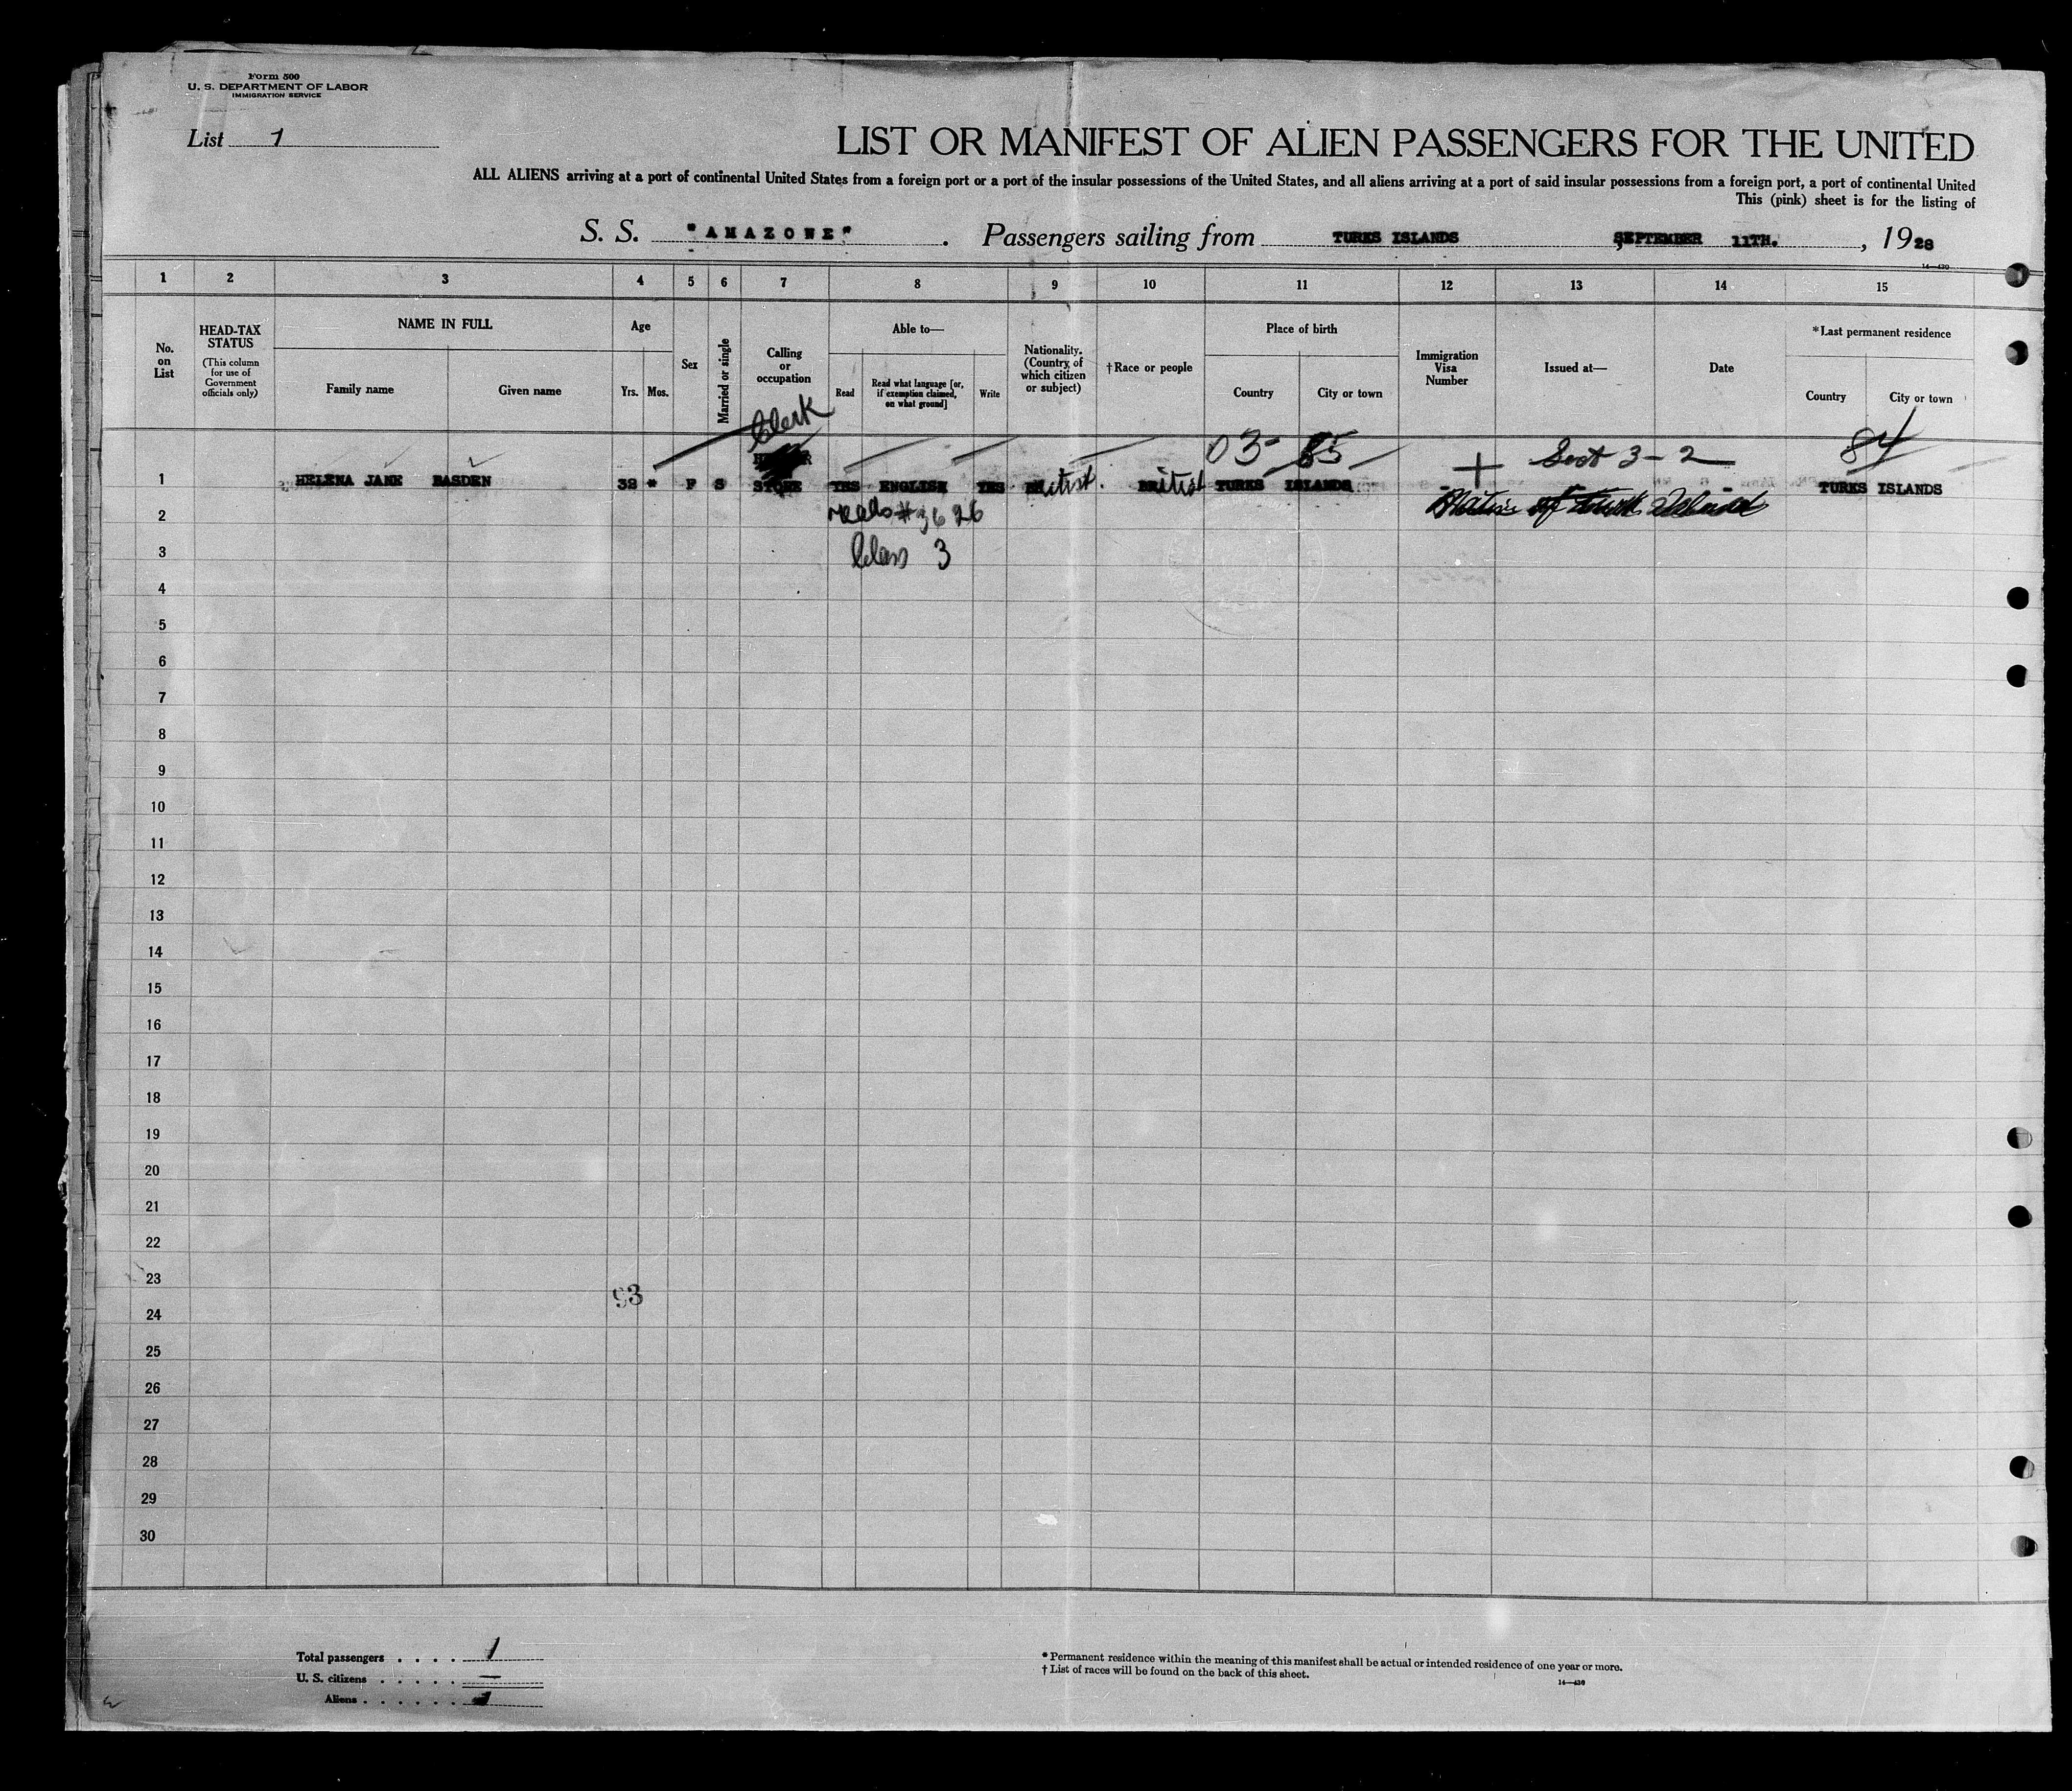 Form 500
U. S. DEPARTMENT OF LABOR
IMMIGRATION SERVICE
List 1
LIST OR MANIFEST OF ALIEN PASSENGERS FOR THE UNITED
ALL ALIENS arriving at a port of continental United States from a foreign port or a port of the insular possessions of the United States, and all aliens arriving at a port of said insular possessions from a foreign port, a port of continental United
This (pink) sheet is for the listing of
S. S. "AMAZONE" . Passengers sailing from TURKS ISLANDS SEPTEMBER 11TH. , 1928
14—430
1 2 3 4 5 6 7 8 9 10 11 12 13 14 15
No. on List
HEAD-TAX STATUS
(This column for use of Government officials only)
NAME IN FULL
Family name Given name
Age
Yrs. Mos.
Sex
Married or single
Calling or occupation
Able to—
Read
Read what language [or, if exemption claimed, on what ground]
Write
Nationality. (Country of which citizen or subject)
†Race or people
Place of birth
Country City or town
Immigration Visa Number
Issued at—
Date
*Last permanent residence
Country City or town
Clerk
03- 85 Sect 3-2 84
1 HELENA JANE BASDEN 38 " F S STORE YES ENGLISH YES British. British TURKS ISLANDS TURKS ISLANDS
2 #3626
3 Class 3
4
5
6
7
8
9
10
11
12
13
14
15
16
17
18
19
20
21
22
23
93
24
25
26
27
28
29
30
Total passengers . . . . 1
U. S. citizens . . . . . —
Aliens . . . . . . 1
* Permanent residence within the meaning of this manifest shall be actual or intended residence of one year or more.
† List of races will be found on the back of this sheet.
14—430